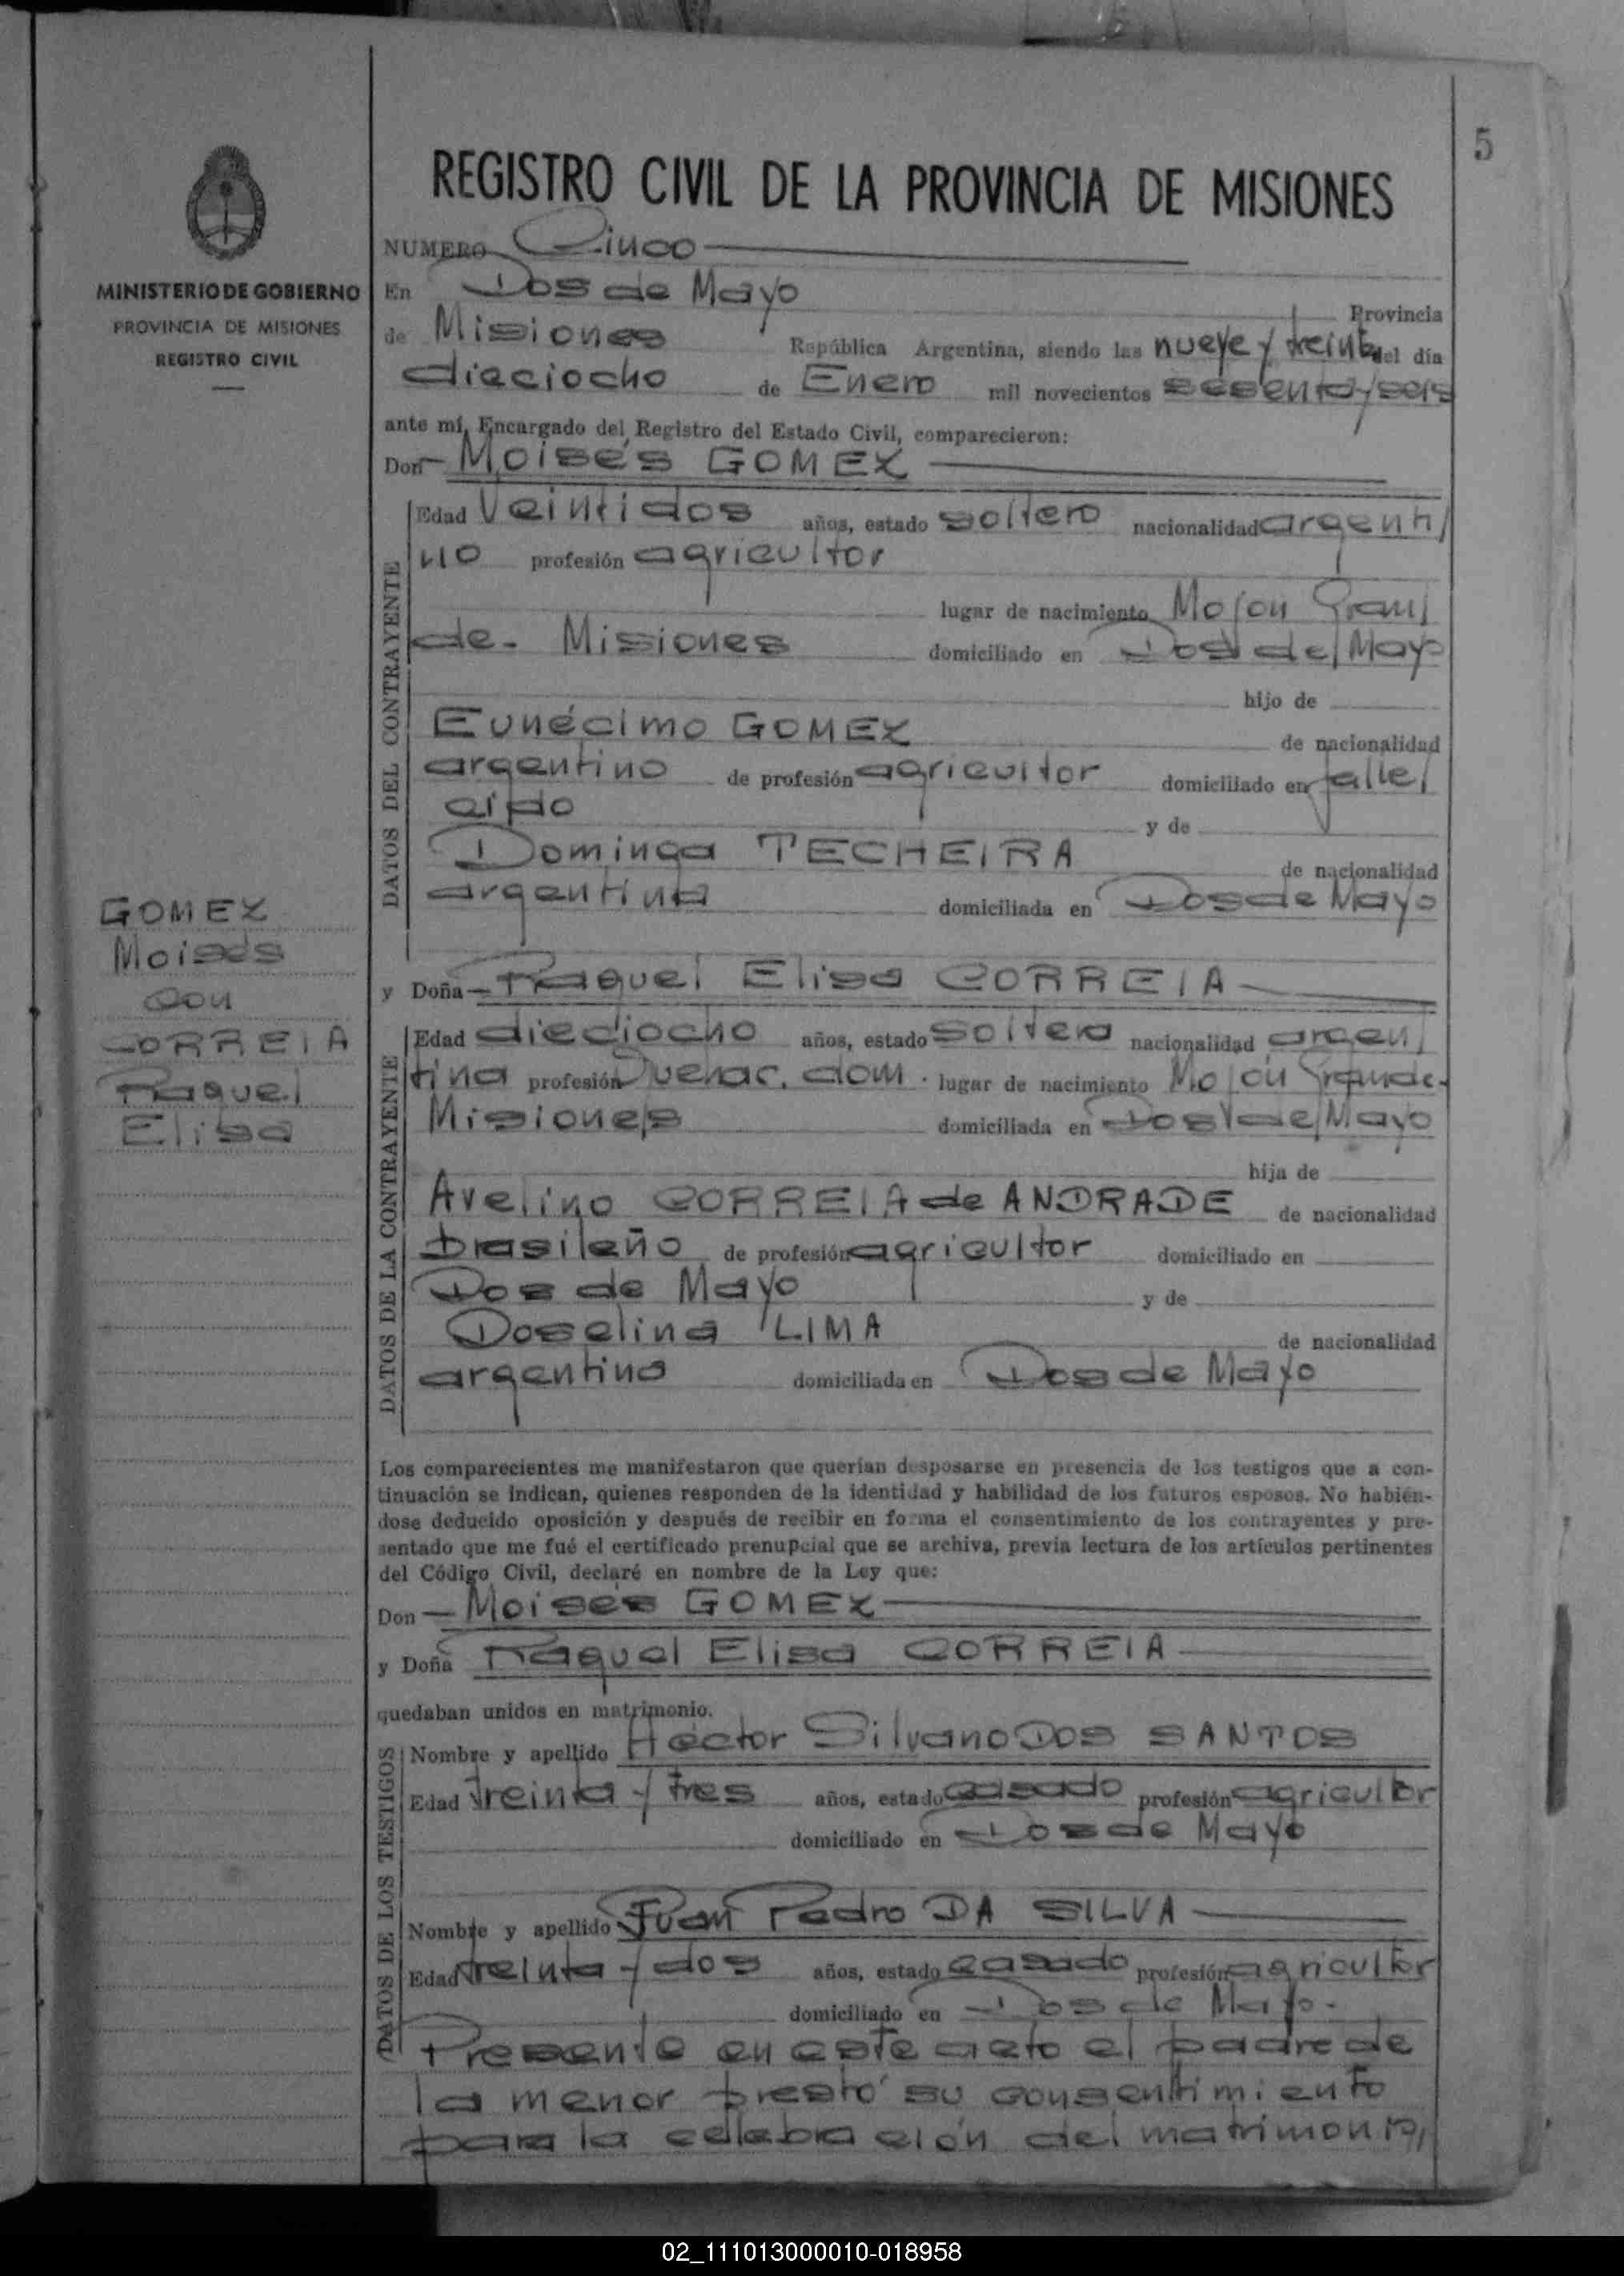 5
REGISTRO CIVIL DE LA PROVINCIA DE MISIONES
MINISTERIO DE GOBIERNO
PROVINCIA DE MISIONES
REGISTRO CIVIL
GOMEZ
Moisés
con
CORREIA
Raquel
Elisa
NUMERO Cinco
En Dos de Mayo
Provincia
de Misiones República Argentina, siendo las nueve y treinta del día
dieciocho de Enero mil novecientos sesenta y seis
ante mí, Encargado del Registro del Estado Civil, comparecieron:
Don Moisés GOMEZ
DATOS DEL CONTRAYENTE
Edad Veintidos años, estado soltero nacionalidad argenti
no profesión agricultor
lugar de nacimiento Mojon Gran
de - Misiones domiciliado en Dos de Mayo
hijo de
Eunécimo GOMEZ
de nacionalidad
argentino de profesión agricultor domiciliado en falle
cido
y de
Dominga TECHEIRA
de nacionalidad
argentina domiciliada en Dos de Mayo
y Doña Raquel Elisa CORREIA
DATOS DE LA CONTRAYENTE
Edad dieciocho años, estado soltera nacionalidad argen
tina profesión Quehac. dom. lugar de nacimiento Mojon Grande-
Misiones domiciliada en Dos de Mayo
hija de
Avelino CORREIA de ANDRADE de nacionalidad
brasileño de profesión agricultor domiciliado en
Dos de Mayo y de
Doselina LIMA
de nacionalidad
argentina domiciliada en Dos de Mayo
Los comparecientes me manifestaron que querían desposarse en presencia de los testigos que a con-
tinuación se indican, quienes responden de la identidad y habilidad de los futuros esposos. No habién-
dose deducido oposición y después de recibir en forma el consentimiento de los contrayentes y pre-
sentado que me fué el certificado prenupcial que se archiva, previa lectura de los artículos pertinentes
del Código Civil, declaré en nombre de la Ley que:
Don Moisés GOMEZ
y Doña Raquel Elisa CORREIA
quedaban unidos en matrimonio.
DATOS DE LOS TESTIGOS
Nombre y apellido Héctor Silvano DOS SANTOS
Edad treinta y tres años, estado casado profesión agricultor
domiciliado en Dos de Mayo
Nombre y apellido Juan Pedro DA SILVA
Edad treinta y dos años, estado casado profesión agricultor
domiciliado en Dos de Mayo.
Presente en este acto el padre de
la menor prestó su consentimiento
para la celebración del matrimonio,
02_111013000010-018958